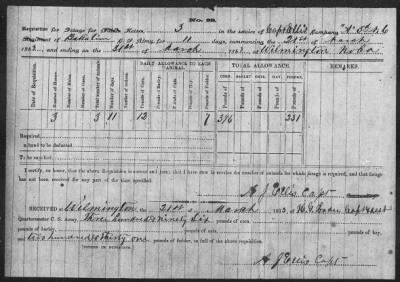 No. 29.
Requisition for Forage for Horses 3 in the service of Capt Ellis Company "A" 5th N.C
Battalion C. S. Army, for 11 days, commencing the 21st of March
1863, and ending on the 31st of March 1863, at Wilmington No Ca
Date of Requisition.
Number of Horses.
Number of Mules.
Total number of Animals.
Number of Days.
DAILY ALLOWANCE TO EACH ANIMAL.
Pounds of Corn.
Pounds of Barley.
Pounds of Oats.
Pounds of Hay.
Pounds of Fodder.
TOTAL ALLOWANCE.
CORN. BARLEY. OATS. HAY. FODDER.
Pounds of
REMARKS.
3 3 11 12 7 396 231
Required,
On hand to be deducted
To be supplied
I certify, on honor, that the above Requisition is correct and just; that I have now in service the number of animals for which forage is required, and that forage
has not been received for any part of the time specified.
A J Ellis Capt
RECEIVED at Wilmington the 21st of March 1863, of
Quartermaster C. S. Army, Three hundred & ninety six pounds of corn,
pounds of barley, pounds of oats, pounds of hay,
and two hundred & thirty one pounds of fodder, in full of the above requisition.
A J Ellis Capt